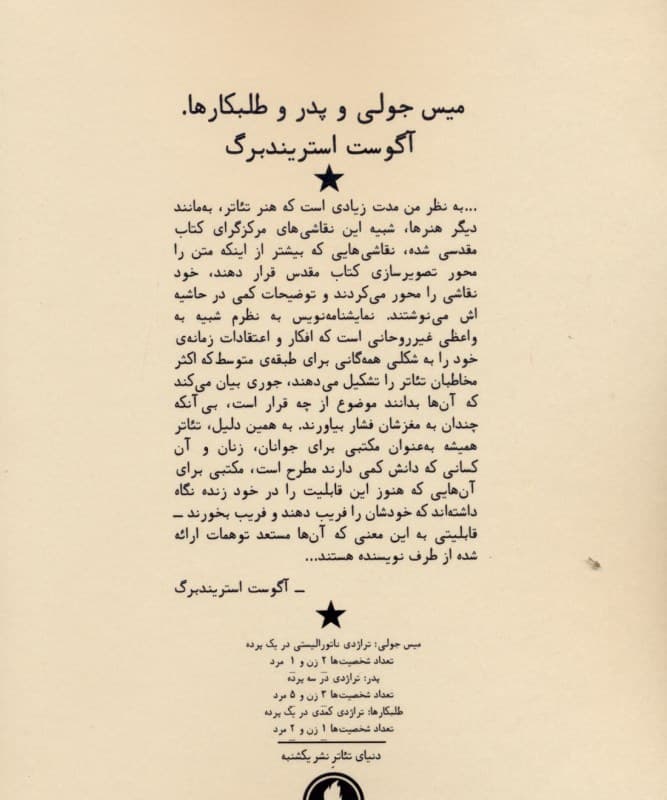 میس جولی و پدر و طلبکارها.
آگوست استریندبرگ
...به نظر من مدت زیادی است که هنر تئاتر، به‌مانند
دیگر هنرها، شبیه این نقاشی‌های مرکزگرای کتاب
مقدسی شده، نقاشی‌هایی که بیشتر از اینکه متن را
محور تصویرسازی کتاب مقدس قرار دهند، خود
نقاشی را محور می‌کردند و توضیحات کمی در حاشیه
اش می‌نوشتند. نمایشنامه‌نویس به نظرم شبیه به
واعظی غیرروحانی است که افکار و اعتقادات زمانه‌ی
خود را به شکلی همه‌گانی برای طبقه‌ی متوسط که اکثر
مخاطبان تئاتر را تشکیل می‌دهند، جوری بیان می‌کند
که آن‌ها بدانند موضوع از چه قرار است، بی‌آنکه
چندان به مغزشان فشار بیاورند. به همین دلیل، تئاتر
همیشه به‌عنوان مکتبی برای جوانان، زنان و آن
کسانی که دانش کمی دارند مطرح است، مکتبی برای
آن‌هایی که هنوز این قابلیت را در خود زنده نگاه
داشته‌اند که خودشان را فریب دهند و فریب بخورند ـ
قابلیتی به این معنی که آن‌ها مستعد توهمات ارائه
شده از طرف نویسنده هستند...
ـ آگوست استریندبرگ
میس جولی: تراژدی ناتورالیستی در یک پرده
تعداد شخصیت‌ها ۲ زن و ۱ مرد
پدر: تراژدی در سه پرده
تعداد شخصیت‌ها ۳ زن و ۵ مرد
طلبکارها: تراژدی کمدی در یک پرده
تعداد شخصیت‌ها ۱ زن و ۲ مرد
دنیای تئاتر نشر یکشنبه